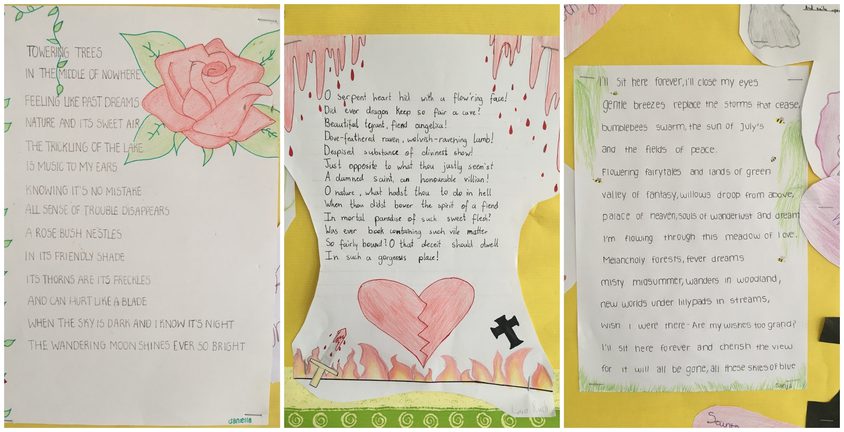 TOWERING TREES
IN THE MIDDLE OF NOWHERE
FEELING LIKE PAST DREAMS
NATURE AND ITS SWEET AIR
THE TRICKLING OF THE LAKE
IS MUSIC TO MY EARS
KNOWING IT'S NO MISTAKE
ALL SENSE OF TROUBLE DISAPPEARS
A ROSE BUSH NESTLES
IN ITS FRIENDLY SHADE
ITS THORNS ARE ITS FRECKLES
AND CAN HURT LIKE A BLADE
WHEN THE SKY IS DARK AND I KNOW IT'S NIGHT
THE WANDERING MOON SHINES EVER SO BRIGHT
daniella
O serpent heart hid with a flow'ring face!
Did ever dragon keep so fair a cave?
Beautiful tyrant, fiend angelica!
Dove-feathered raven, wolvish-ravening lamb!
Despised substance of divinest show!
Just opposite to what thou justly seem'st
A damned saint, an honourable villian!
O nature, what hadst thou to do in hell
When thou didst bower the spirit of a fiend
In mortal paradise of such sweet flesh?
Was ever book containing such vile matter
So fairly bound? O that deceit should dwell
In such a gorgeous place!
I'll sit here forever, i'll close my eyes
gentle breezes replace the storms that cease,
bumblebees swarm, the sun of July's
and the fields of peace.
Flowering fairytales and lands of green
valley of fantasy, willows droop from above,
palace of heaven, souls of wanderlust and dream
I'm flowing through this meadow of love.
Melancholy forests, fever dreams
misty midsummer, wanders in woodland,
new worlds under lillypads in streams,
wish I were there - Are my wishes too grand?
I'll sit here forever and cherish the view
for it will all be gone, all these skies of blue